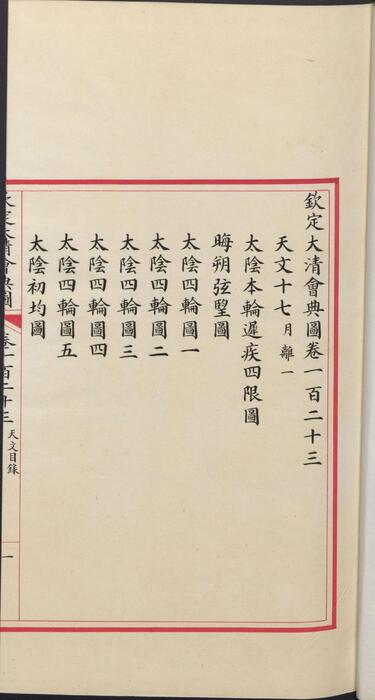 欽定大清會典圖卷一百二十三
天文十七 月離一
太陰本輪遲疾四限圖
晦朔弦望圖
太陰四輪圖一
太陰四輪圖二
太陰四輪圖三
太陰四輪圖四
太陰四輪圖五
太陰初均圖
欽定大清會典圖 卷一百二十三 天文目錄 一